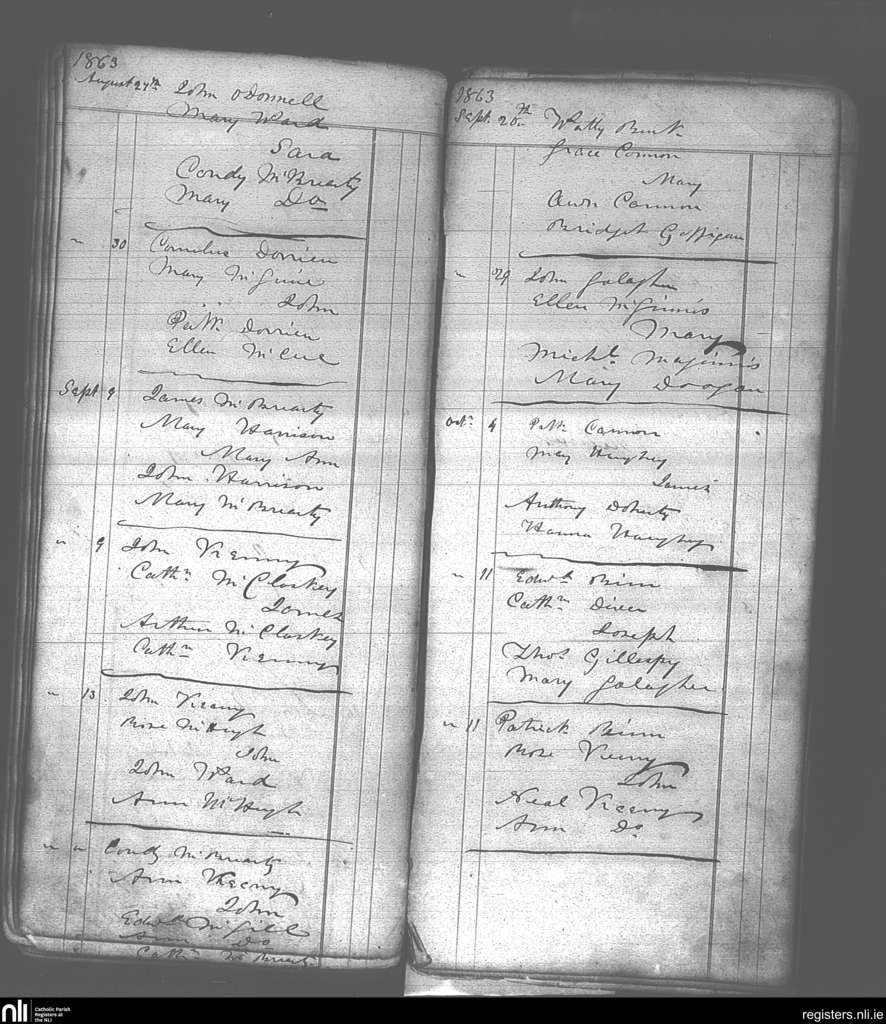 1863
August 27th John O'Donnell
Mary Ward
Sara
Condy McBrearty
Mary Do
" 30 Cornelius Dorrien
Mary McGuire
John
Patk. Dorrien
Ellen McCue
Sept 9 James McBrearty
Mary Harrison
Mary Ann
John Harrison
Mary McBrearty
" 9 John Keeny
Cathn McCloskey
James
Arthur McCloskey
Cathn Keeny
" 13 John Keeny
Rose McHugh
John
John Ward
Ann McHugh
" " Condy McBrearty
Ann Keeny
John
Edwd McGill
Ann Do
Cathn McBrearty
1863
Sept. 20th Watty Burk
Grace Connon
Mary
Cannon
Bridget Gaffigan
" 29 John Galagher
Ellen McGinnis
Mary
Michl. Maginnis
Mary Doogan
Octr 4 Patk Cannon
Mary Haughey
James
Anthony Doherty
Hanna Haughey
" 11 Edwd Binn
Cathn Diver
Joseph
Thos Gillespy
Mary Galagher
" 11 Patrick Binn
Rose Keeny
John
Neal Keeny
Ann Do
nli Catholic Parish
Registers at
the NLI
registers.nli.ie